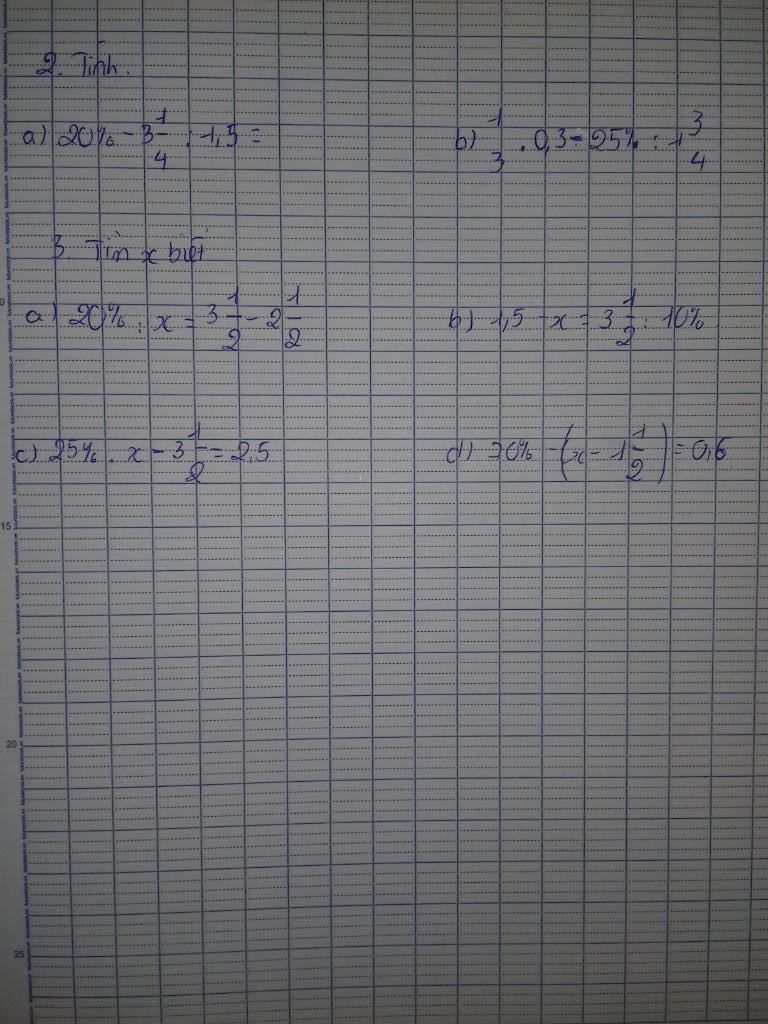 2. Tính.
a) 20% - 3 1/4 : 1,5 =
b) 1/3 . 0,3 - 25% : 1 3/4
3. Tìm x biết
a) 20% : x = 3 1/2 - 2 1/2
b) 1,5 - x = 3 1/2 : 10%
c) 25% . x - 3 1/2 = 2,5
d) 70% - (x - 1 1/2) = 0,6
15
20
25